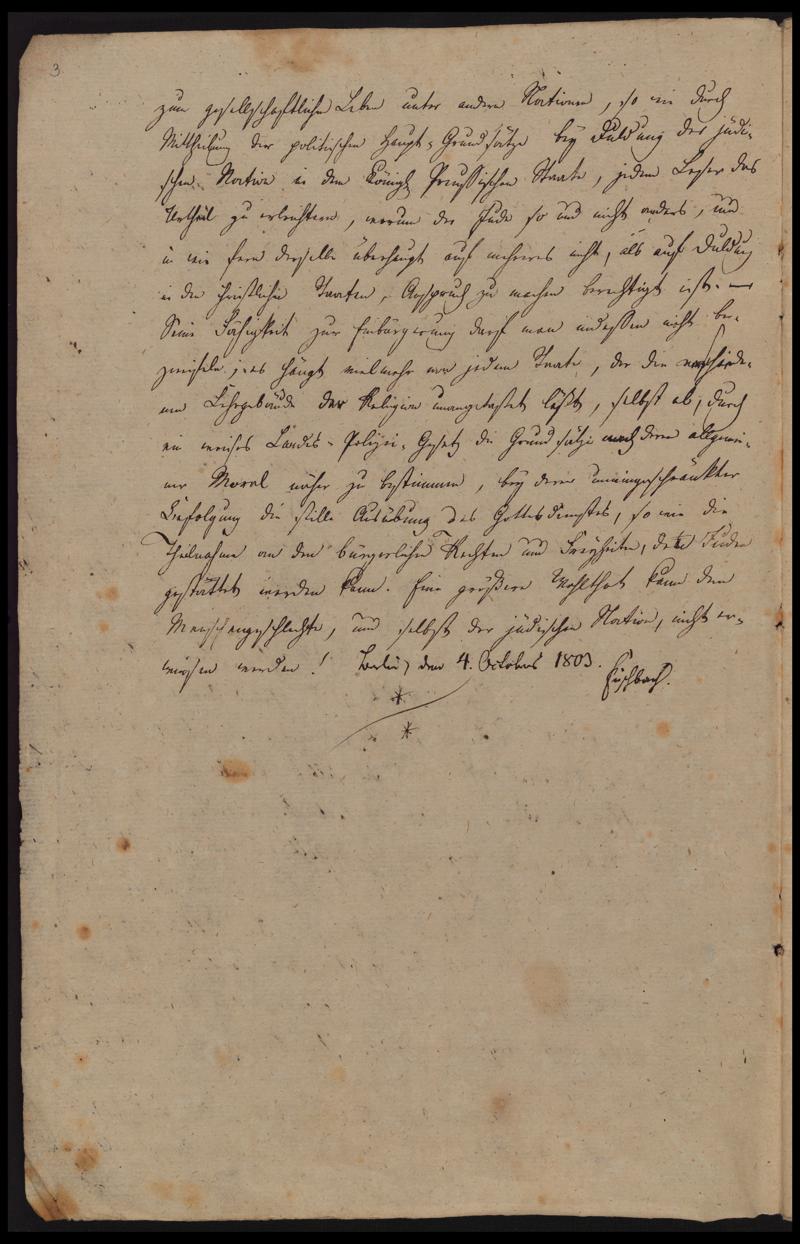 3
zum gesellschaftlichen Leben unter andern Nationen, so wie durch
Mittheilung der politischen Haupt-Grundsätze bey Duldung der jüdi-
schen Nation in dem Königl. Preußischen Staate, jedem Leser das
Urtheil zu erleichtern, warum der Jude so und nicht anders, und
in wie fern derselbe überhaupt auf mehreres nicht, als auf Duldung
in den christlichen Staaten, Anspruch zu machen berechtigt ist. —
Seine Fähigkeit zur Einbürgerung darf man indessen nicht be-
zweifeln; es hängt vielmehr von jedem Staate, der die verschiede-
nen Lehrgebäude der Religion unangetastet läßt, selbst ab, durch
ein weises Landes-Polizei-Gesetz die Grundsätze nach denen allgemei-
ner Moral näher zu bestimmen, bey deren uneingeschränkter
Befolgung die stille Ausübung des Gottesdienstes, so wie die
Theilnahme an den bürgerlichen Rechten und Freyheiten, den Juden
gestattet werden kann. Eine größere Wohlthat kann dem
Menschengeschlechte, und selbst der jüdischen Nation, nicht er-
wiesen werden! Berlin, den 4. Octobris 1803.
Fischbach.
*
*